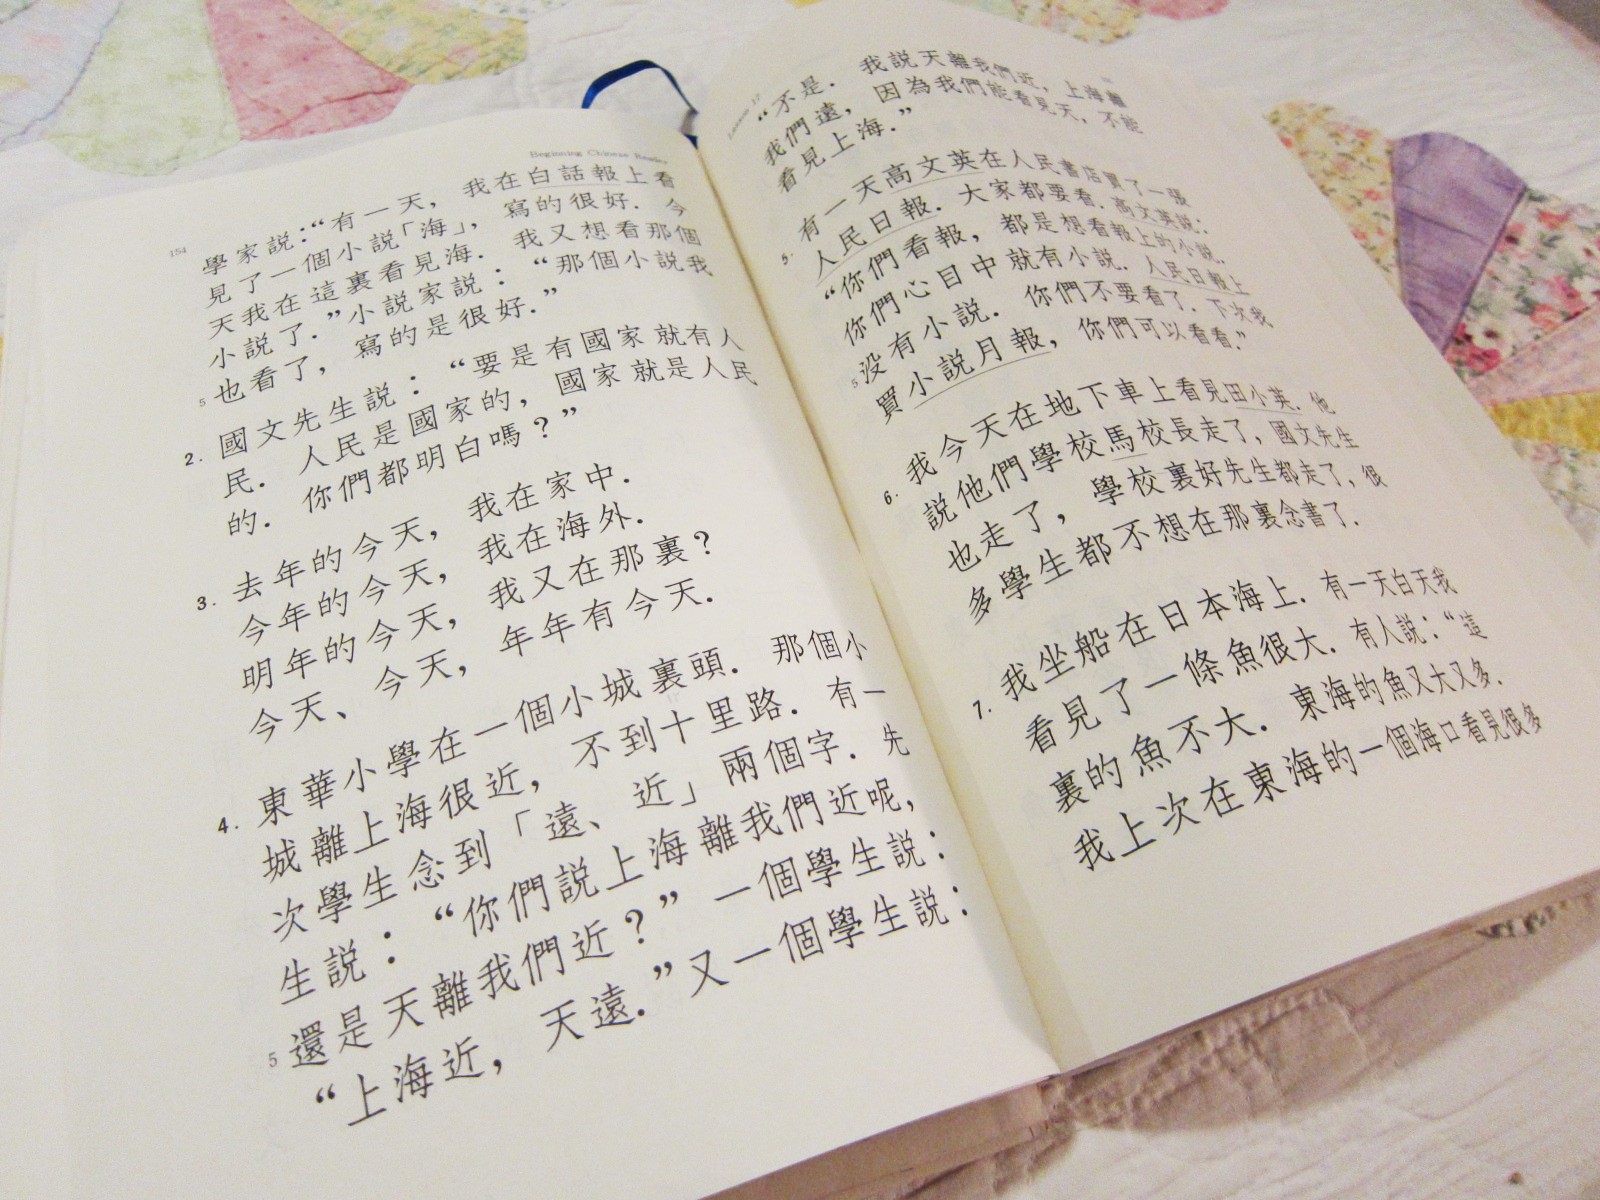 Beginning Chinese Reader
154
學家説：“有一天，我在白話報上看
見了一個小説「海」，寫的很好．今
天我在這裏看見海．我又想看那個
小説了．”小説家説：“那個小説我
5 也看了，寫的是很好．”
2. 國文先生説：“要是有國家就有人
民．人民是國家的，國家就是人民
的．你們都明白嗎？”
3. 去年的今天，我在家中．
今年的今天，我在海外．
明年的今天，我又在那裏？
今天、今天，年年有今天．
4. 東華小學在一個小城裏頭．那個小
城離上海很近，不到十里路．有一
次學生念到「遠、近」兩個字．先
生説：“你們説上海離我們近呢，
5 還是天離我們近？”一個學生説：
“上海近，天遠．”又一個學生説：
Lesson 17
“不是．我説天離我們近，上海離
我們遠，因為我們能看見天，不能
看見上海．”
5. 有一天高文英在人民書店買了一張
人民日報．大家都要看．高文英説：
“你們看報，都是想看報上的小説．
你們心目中就有小説．人民日報上
5 没有小説．你們不要看了．下次我
買小説月報，你們可以看看．”
6. 我今天在地下車上看見田小英．他
説他們學校馬校長走了，國文先生
也走了，學校裏好先生都走了，很
多學生都不想在那裏念書了．
7. 我坐船在日本海上．有一天白天我
看見了一條魚很大．有人説：“這
裏的魚不大．東海的魚又大又多．
我上次在東海的一個海口看見很多